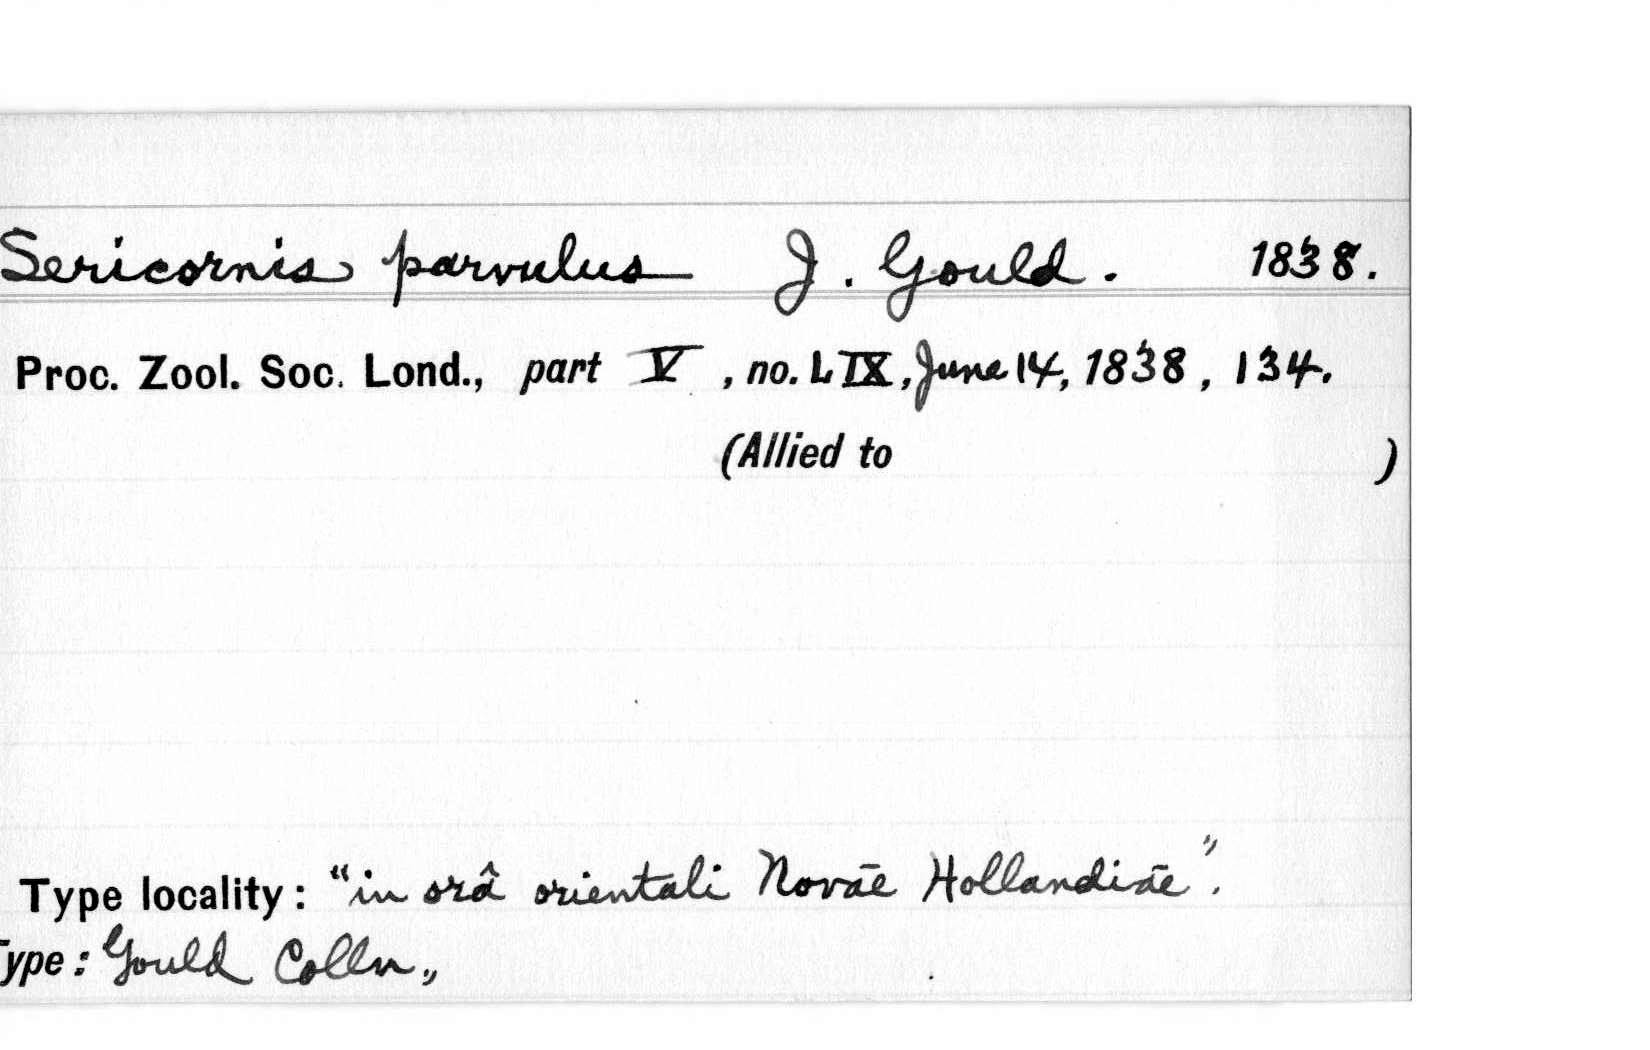 Sericornis parvulus J. Gould. 1838.
Proc. Zool. Soc. Lond., part V, no. LIX, June 14, 1838, 134.
(Allied to )
Type locality: "in orâ orientali Novāe Hollandiāe".
Type: Gould Colln.,